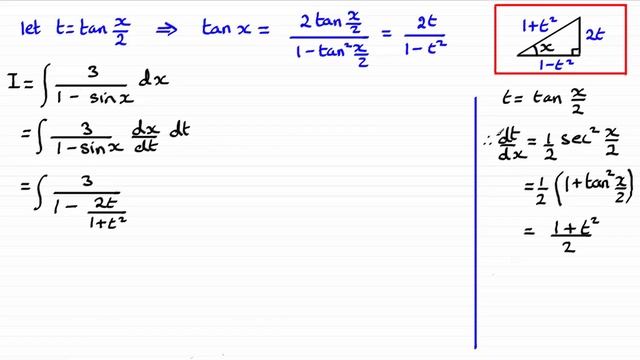 let t = tan x/2 ⇒ tan x = 2 tan x/2 / 1 - tan² x/2 = 2t / 1 - t²
1+t²
2t
x
1-t²
I = ∫ 3 / 1 - sin x dx
= ∫ 3 / 1 - sin x dx/dt dt
= ∫ 3 / 1 - 2t / 1+t²
t = tan x/2
∴ dt/dx = 1/2 sec² x/2
= 1/2 (1 + tan² x/2)
= 1 + t² / 2